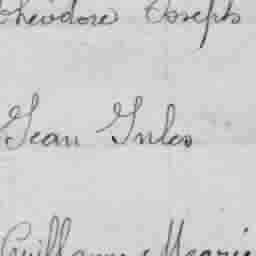 Theodore Joseph
Jean Jules
Guillaume Marie